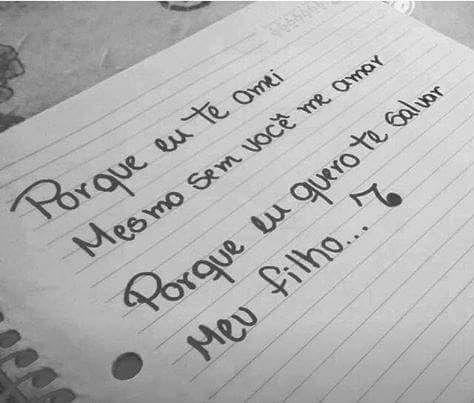 Porque eu te amei
Mesmo sem você me amar
Porque eu quero te salvar
Meu filho...